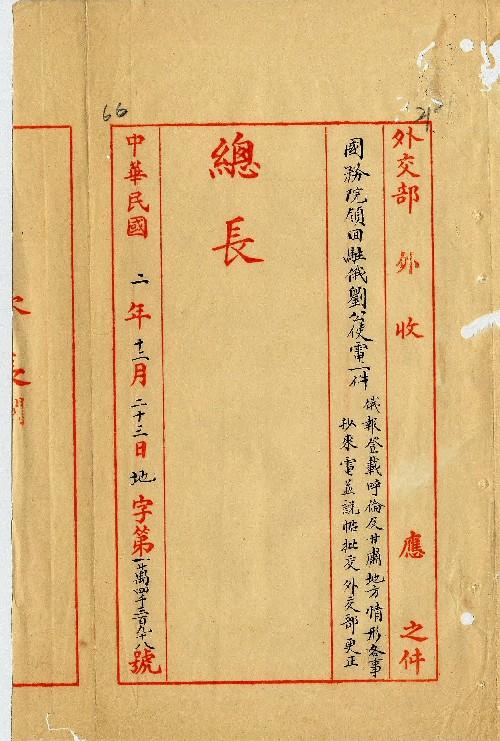 66
外交部 外 收 應 之件
國務院領回駐俄劉公使電一件
俄報登載呼倫及甘肅地方情形各事
抄來電並說帖批交外交部更正
總長
中華民國 二年十二月二十三日地字第一萬四千三百九十八號